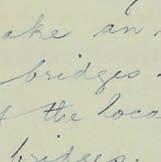 ake an
bridges
the loca
bridges.